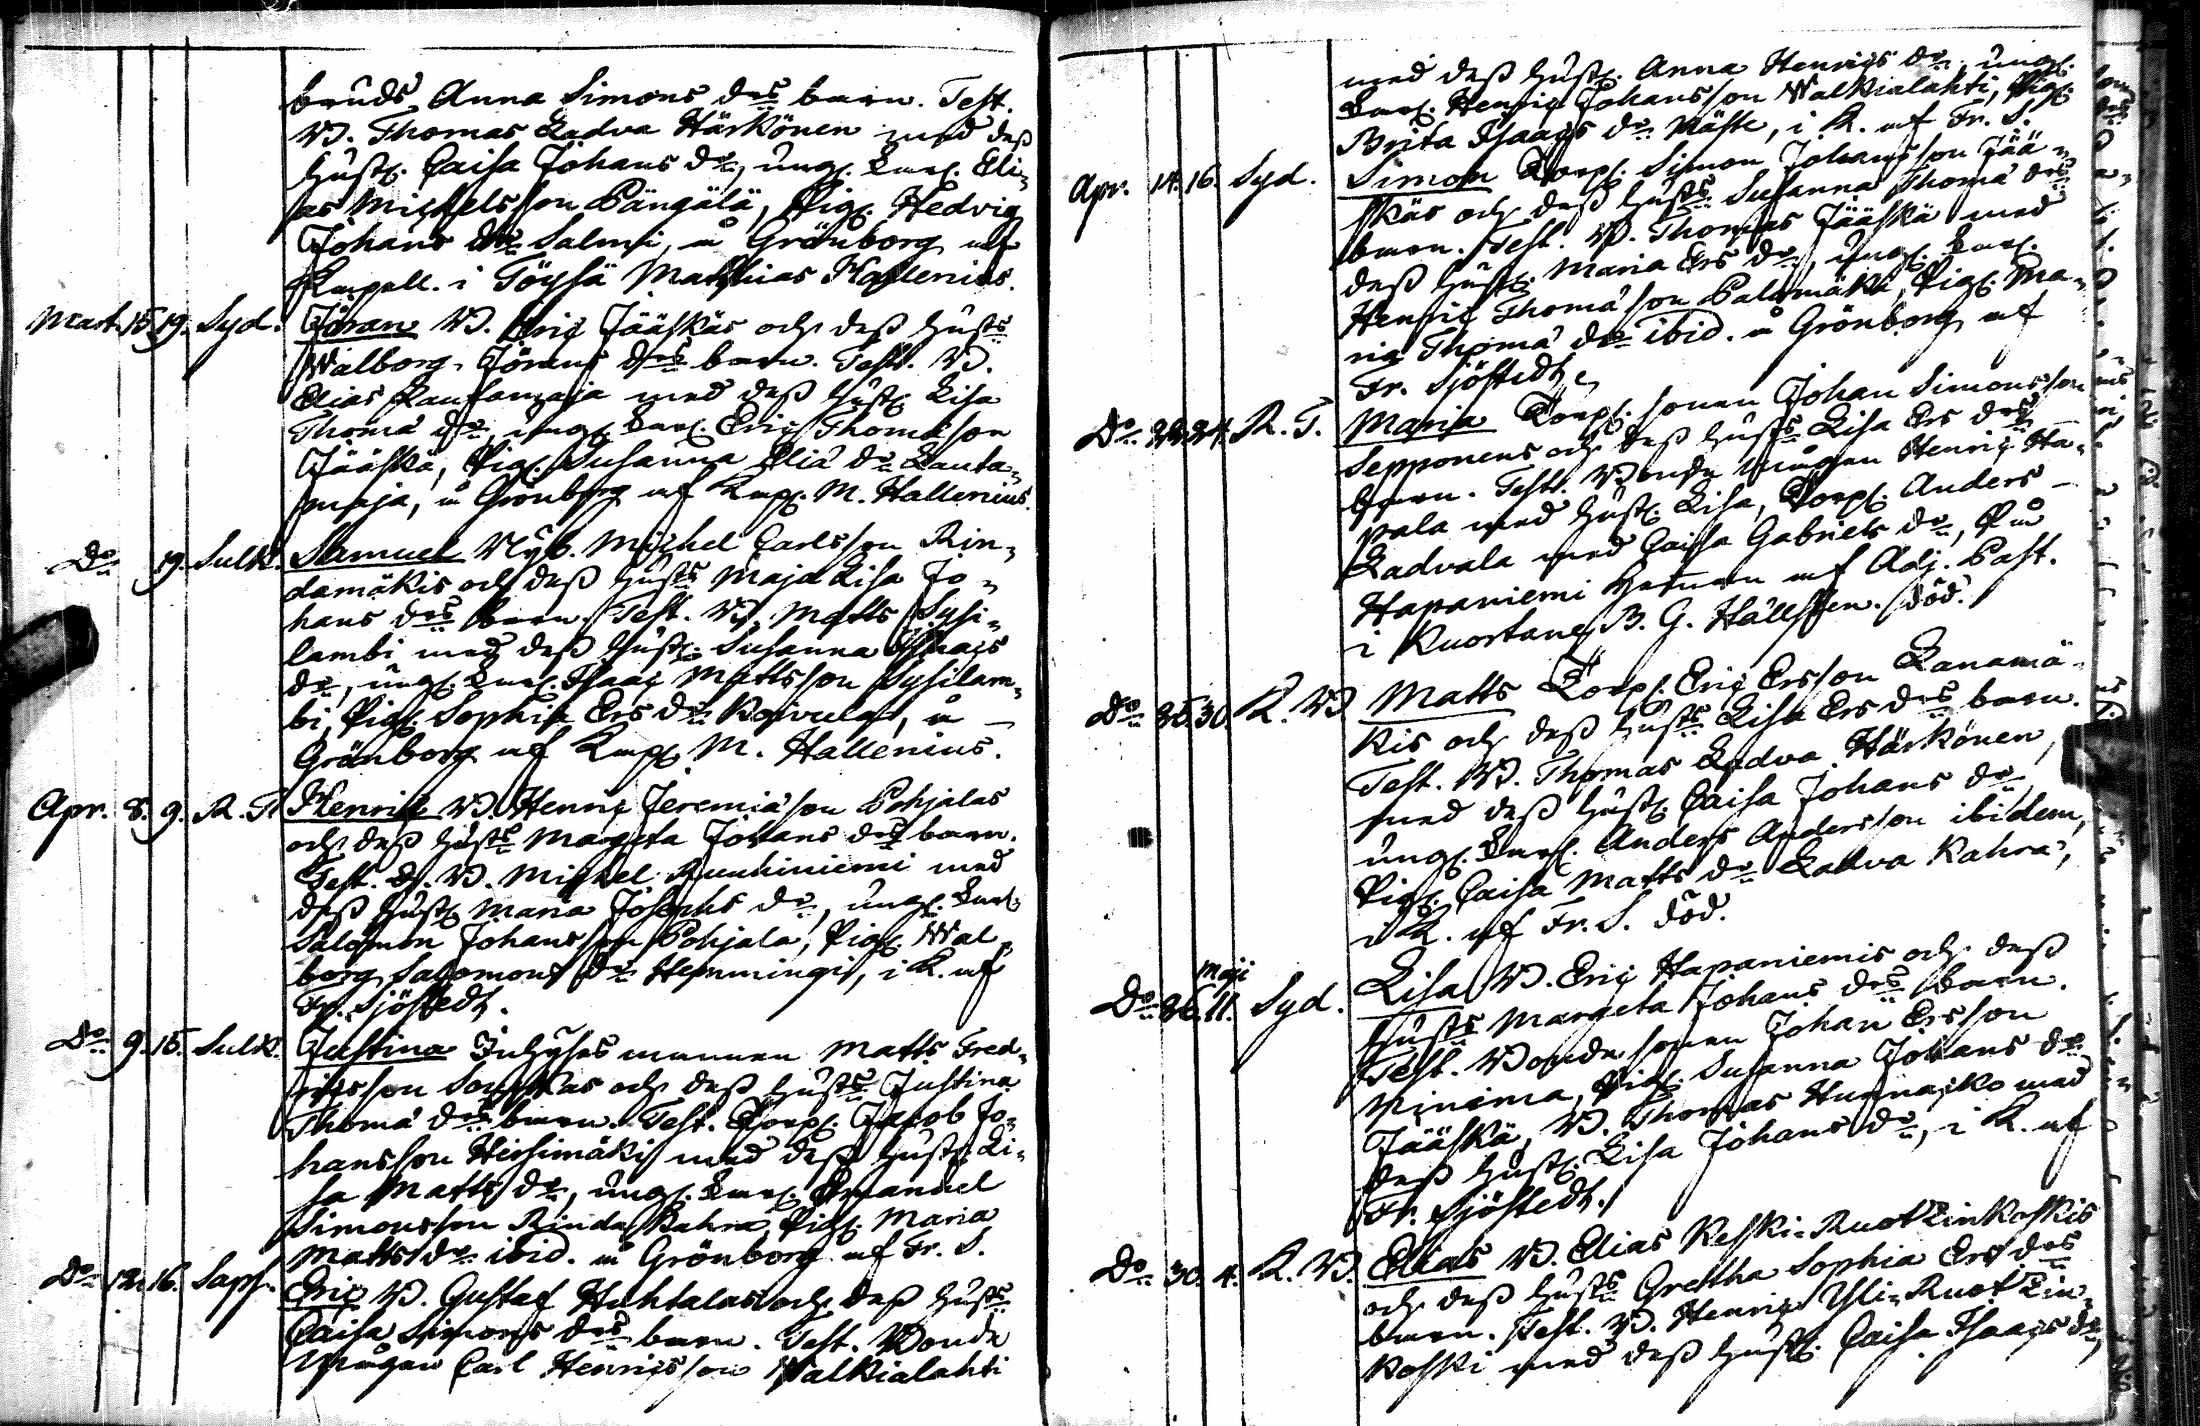 bruds, Anna Simons drs barn. Test.
B. Thomas Ladva Härkönen med dess
hustr. Caisa Johans dr, ung. dr. Eli-
as Michelsson Pängälä, Pig. Hedvig
Johans dr Salmi, å Grönborg af
Kapell. i Töysä Matthias Hallenius.
Mart. 15. 19. Syd. Jöran B. Eric Jääskäs och dess hustrs
Walborg Jörans drs barn. Test. B.
Elias Rautamaja med dess hustr. Lisa
Thomæ dr, ung. dr. Eric Thomæson
Jääskä, Pig. Susanna Eliæ dr Lauta-
maja, å Grönborg af Kap. M. Hallenius.
Do 19. Sulk. Samuel Nyb. Michel Carlsson Rin-
damäkis och dess hustrs Maja Lisa Jo-
hans drs barn. Test. B. Matts Sysi-
lambi med dess hustr. Susanna Isaacs
dr, ung. dr. Isaac Mattsson Sysilam-
bi, Pig. Sophia Ers dr Koivula, å
Grönborg af Kap. M. Hallenius.
Apr. 8. 9. R. T. Henric B. Henric Jeremiæson Pohjalas
och dess hustrs Margeta Johans drs barn.
Test. B. Michel Ruuhiniemi med
dess hustr. Maria Josephs dr, ung. dr.
Salomon Johansson Pohjala, Pig. Wal-
borg Salomons dr Hemmingi, i K. af
Fr. Sjöstedt.
Do 9. 15. Sulk. Justina Inhyses mannen Matts Fred-
ricsson och dess hustrs Justina
Thomæ drs barn. Test. Torp. Jacob Jo-
hansson Hirsimäki med dess hustr. Li-
sa Matts dr, ung. dr. Emanuel
Simonsson Rinda Kahra, Pig. Maria
Matts dr ibid. å Grönborg af Fr. S.
Do 12. 16. Sapp. Eric B. Gustaf Huhtalas och dess hustrs
Caisa Simons drs barn. Test. Bonde
mågen Carl Henricsson Walkialahti
med dess hustr. Anna Henrics dr, ung.
dr. Henric Johansson Walkialahti, Pig.
Brita Isaacs dr Mäste, i K. af Fr. S.
Apr. 14. 16. Syd. Simon Torp. Simon Johansson Jää-
skäs och dess hustrs Susanna Thomæ drs
barn. Test. B. Thomas Jääskä med
dess hustr. Maria Ers dr, ung. dr.
Henric Thomæson Palomäki, Pig. Ma-
ria Thomæ dr ibid. å Grönborg af
Fr. Sjöstedt.
Do 22. 24. R. T. Maria Torp. sonen Johan Simonsson
Sepponens och dess hustrs Lisa Ers drs
barn. Test. Bonde mågen Henric Ha-
pala med hustr. Lisa, Torp. Anders
Ladvala med Caisa Gabriels dr, På
Hapaniemi af Adj. Past.
i Kuortane B. G. Hällsten. död.
Do 25. 30. K. B. Matts Torp. Eric Ersson Lanamä-
kis och dess hustrs Lisa Ers drs barn.
Test. B. Thomas Ladva Härkönen,
med dess hustr. Caisa Johans dr,
ung. dr. Anders Andersson ibidem,
Pig. Caisa Matts dr Ladva Kahra,
i K. af Fr. S. död.
Do 26. Maji 11. Syd. Lisa B. Eric Hapaniemis och dess
hustrs Margeta Johans drs barn.
Test. Bonde sonen Johan Ersson
Minima, Pig. Susanna Johans dr
Jääskä, B. Thomas Hunnasko med
dess hustr. Lisa Johans dr, i K. af
Fr. Sjöstedt.
Do 30. 4. K. B. Elias B. Elias Keski-Ruotzinkoskis
och dess hustrs Gretha Sophia Ers drs
barn. Test. B. Henric Yli-Ruotzin-
koski med dess hustr. Caisa Isaacs dr,